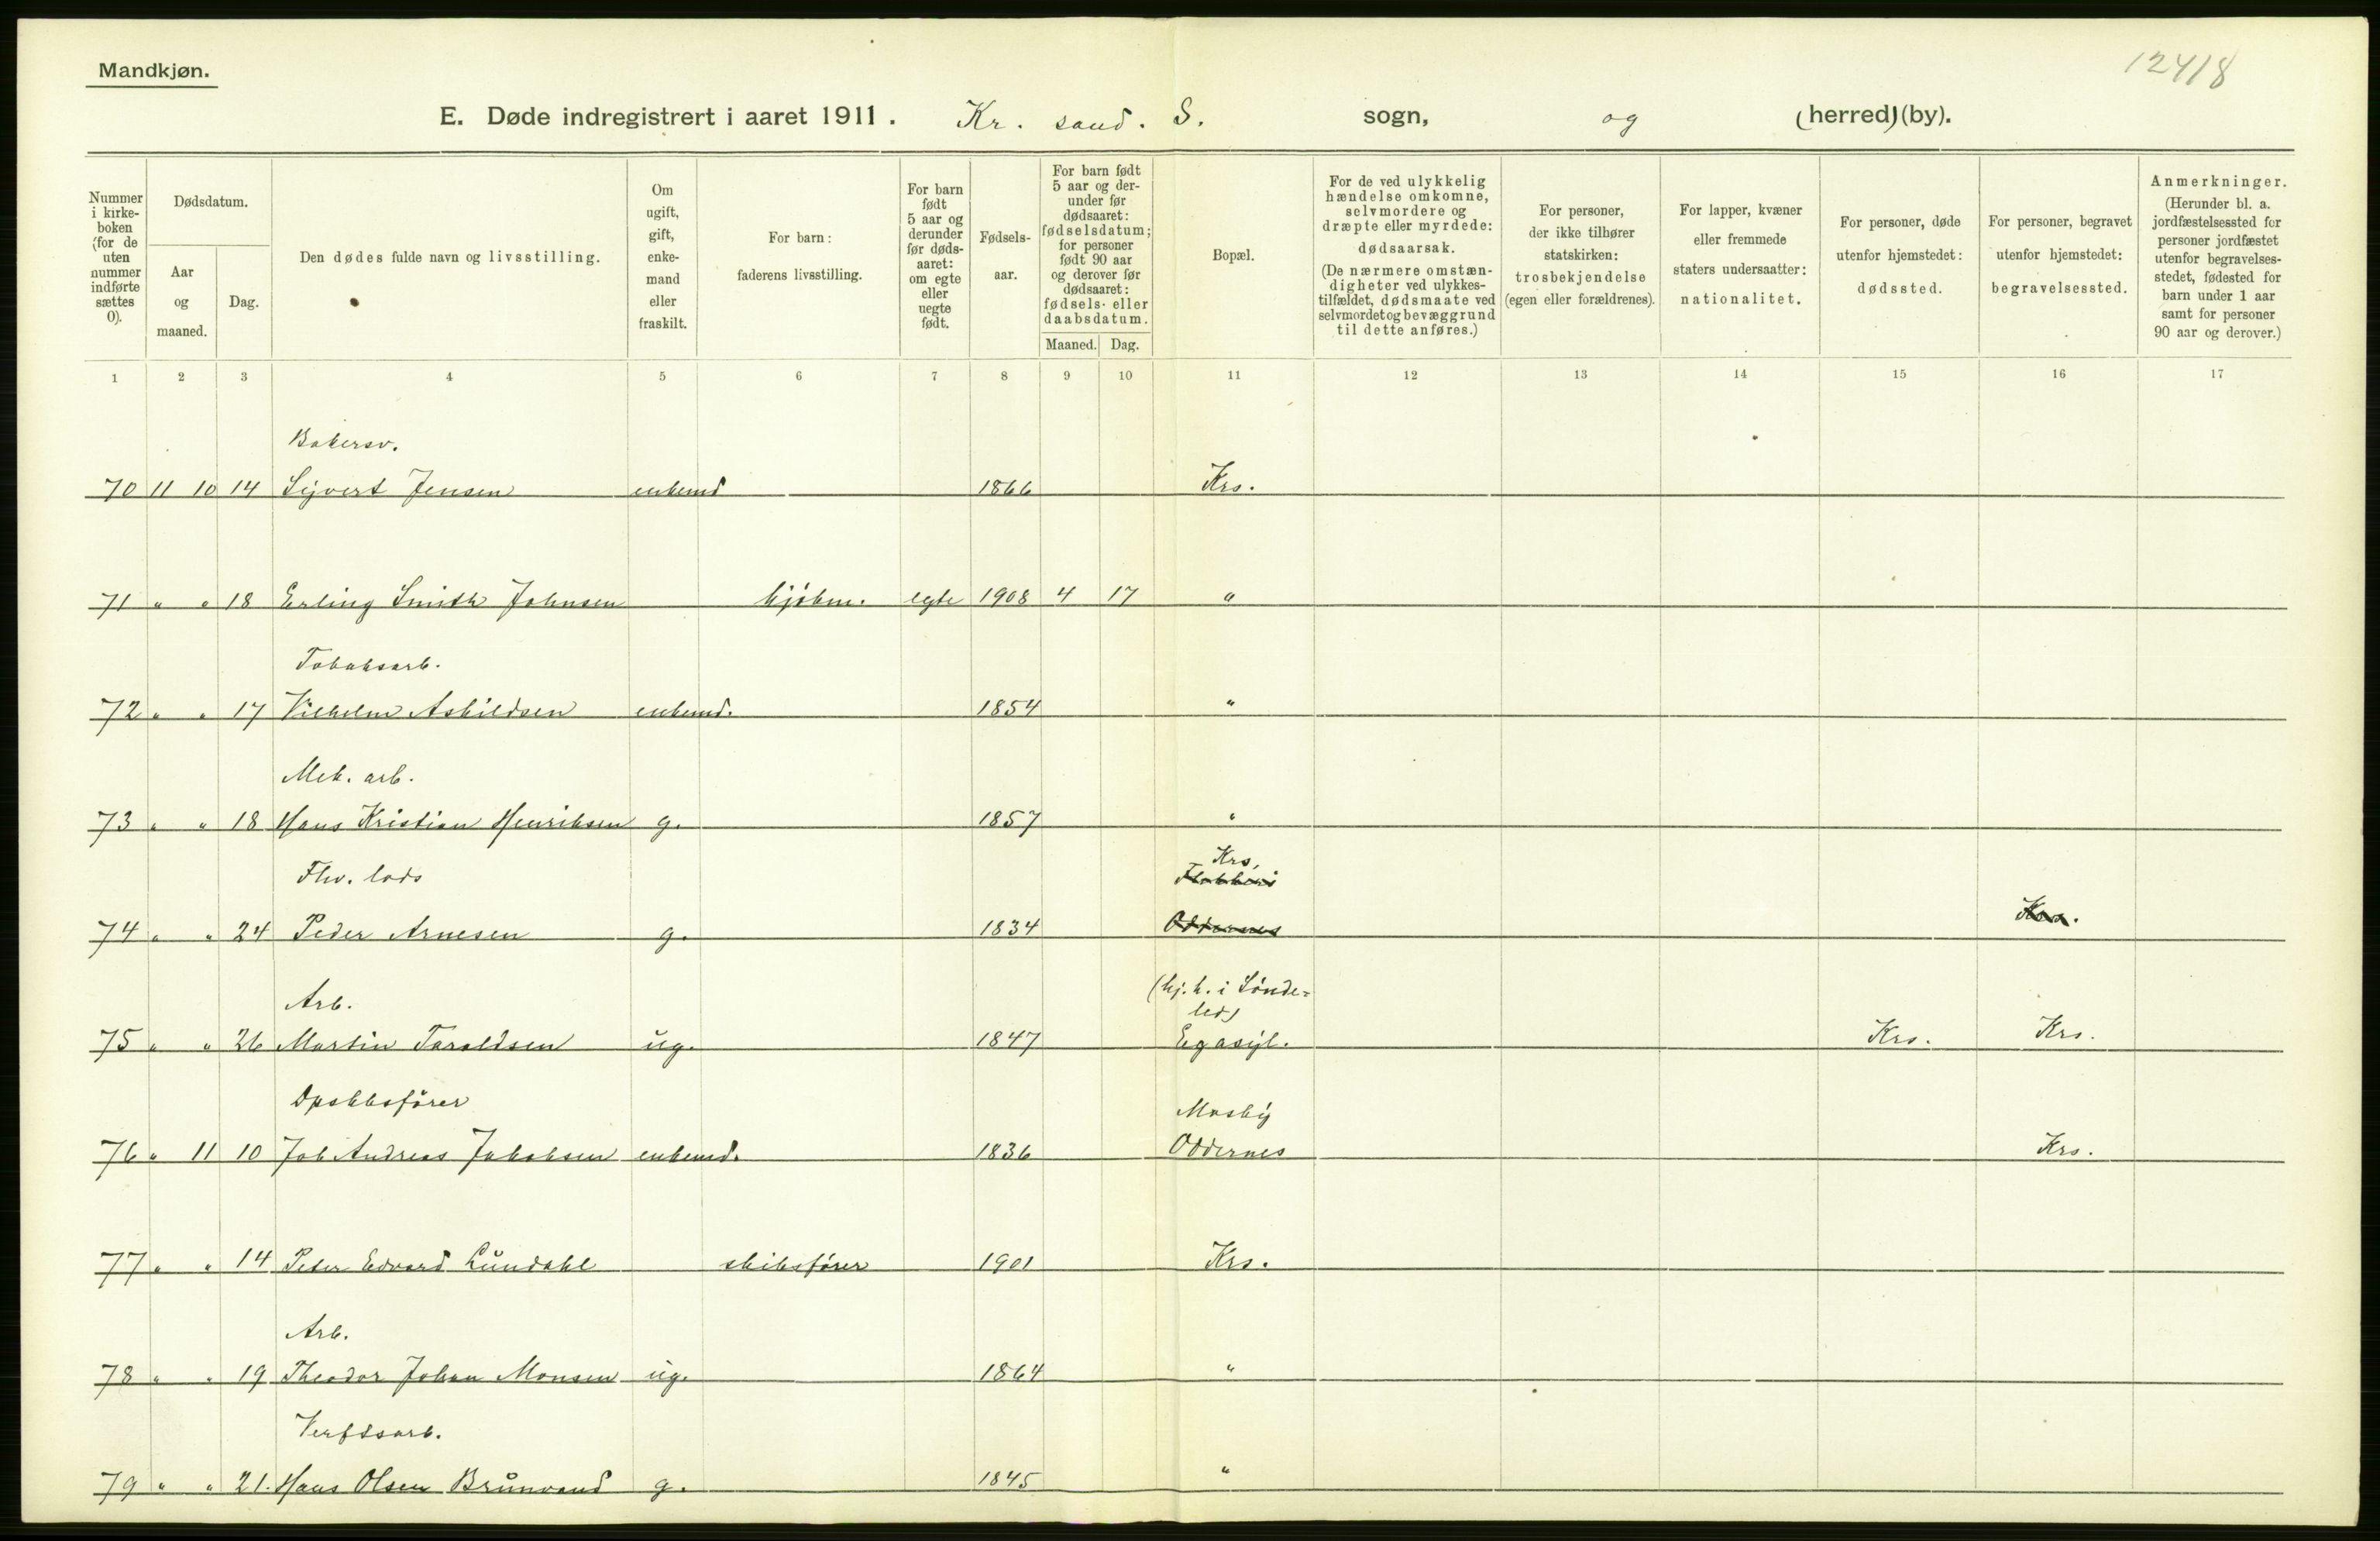 Mandkjøn.
12418
E. Døde indregistrert i aaret 1911. Kr. sand. S. sogn, og (herred) (by).
Nummer i kirke-boken (for de uten nummer indførte sættes 0).
Dødsdatum.
Aar og maaned.
Dag.
Den dødes fulde navn og livsstilling.
Om ugift, gift, enke-mand eller fraskilt.
For barn: faderens livsstilling.
For barn født 5 aar og derunder før døds-aaret: om egte eller uegte født.
Fødsels-aar.
For barn født 5 aar og der-under før dødsaaret: fødselsdatum; for personer født 90 aar og derover før dødsaaret: fødsels- eller daabsdatum.
Maaned. Dag.
Bopæl.
For de ved ulykkelig hændelse omkomne, selvmordere og dræpte eller myrdede: dødsaarsak. (De nærmere omstæn-digheter ved ulykkes-tilfældet, dødsmaate ved selvmordet og bevæggrund til dette anføres.)
For personer, der ikke tilhører statskirken: trosbekjendelse (egen eller forældrenes).
For lapper, kvæner eller fremmede staters undersaatter: nationalitet.
For personer, døde utenfor hjemstedet: dødssted.
For personer, begravet utenfor hjemstedet: begravelsessted.
Anmerkninger. (Herunder bl. a. jordfæstelsessted for personer jordfæstet utenfor begravelses-stedet, fødested for barn under 1 aar samt for personer 90 aar og derover.)
1 2 3 4 5 6 7 8 9 10 11 12 13 14 15 16 17
Bakersv.
70 11 10 14 Sijvert Jensen enkemd 1866 Krs.
71 " " 18 Erling Smith Johnsen kjøbm. egte 1908 4 17 "
Tobaksarb.
72 " " 17 Vilhelm Askildsen enkemd. 1854 "
Mek. arb.
73 " " 18 Hans Kristian Henriksen g. 1857 "
Krs.
Fhv. lods
74 " " 24 Peder Arnesen g. 1834 Oddernes Krs.
(hj.h. i Sønde-
Arb. led)
75 " " 26 Martin Taraldsen ug. 1847 Egasyl. Krs. Krs.
Opsikksfører Mosby
76 " 11 10 Job Andreas Jakobsen enkemd. 1836 Oddernes Krs.
77 " " 14 Peder Edvard Lundahl skibsfører 1901 Krs.
Arb.
78 " " 19 Theodor Johan Monsen ug. 1864 "
Verftsarb.
79 " " 21. Hans Olsen Brunvand g. 1845 "